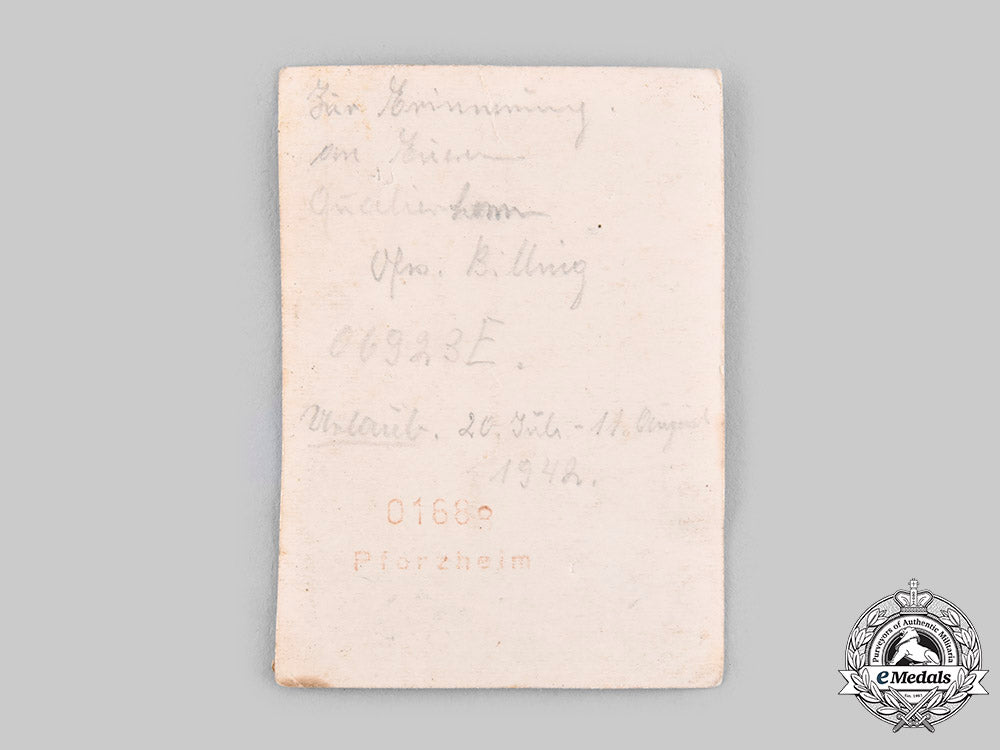 Zur Erinnerung.
an Eueren
Quartierherrn
Ofw. Billing
06923E.
Urlaub. 20. Juli - 11. August
1942.
0168
Pforzheim
Purveyors of Authentic Militaria
eMedals